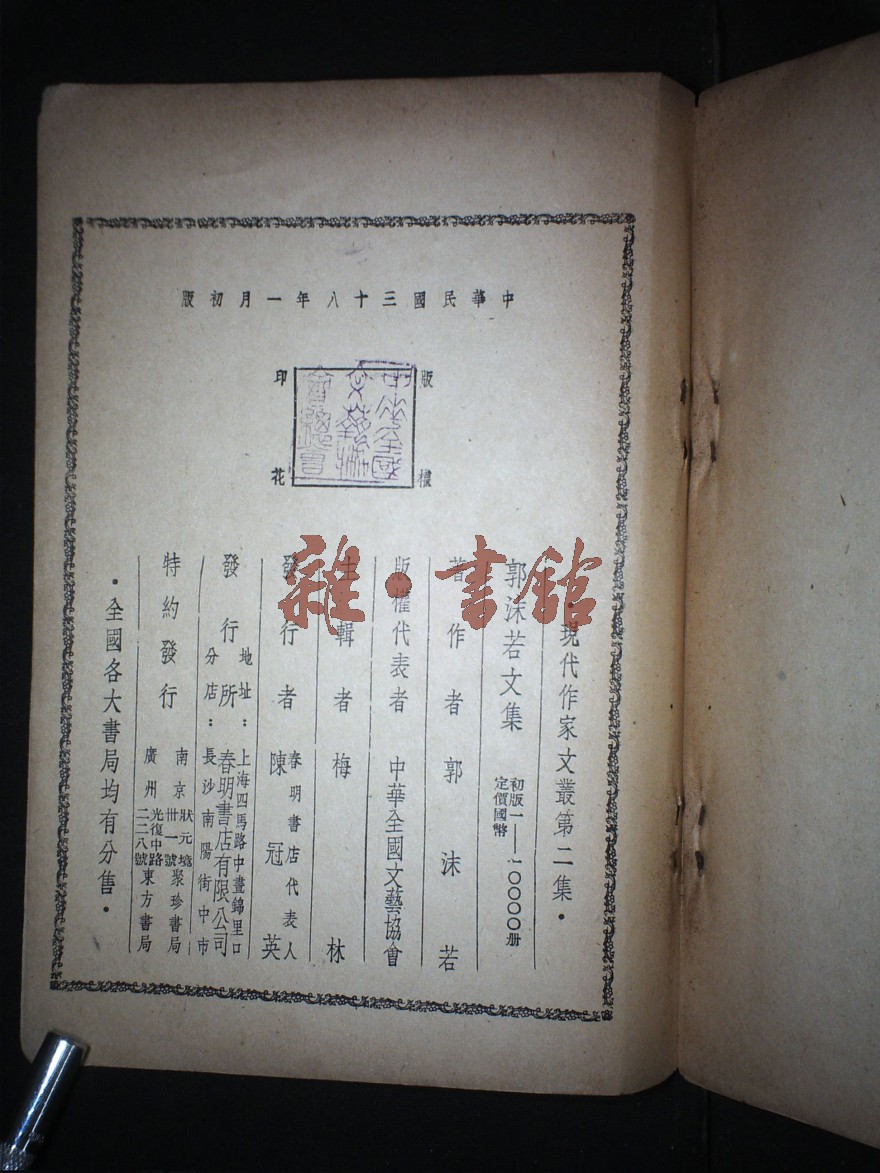 中華民國三十八年一月初版
版權
印花
中華全國
文藝協
會總會
•現代作家文叢第二集•
郭沫若文集
初版一——10000册
定價國幣
著作者 郭沫若
版權代表者 中華全國文藝協會
主輯者 梅林
發行者 春明書店代表人 陳冠英
發行所 春明書店有限公司
地址：上海四馬路中晝錦里口
分店：長沙南陽街中市
特約發行
南京 狀元境卅一號 聚珍書局
廣州 光復中路二二八號 東方書局
•全國各大書局均有分售•
雜•書館